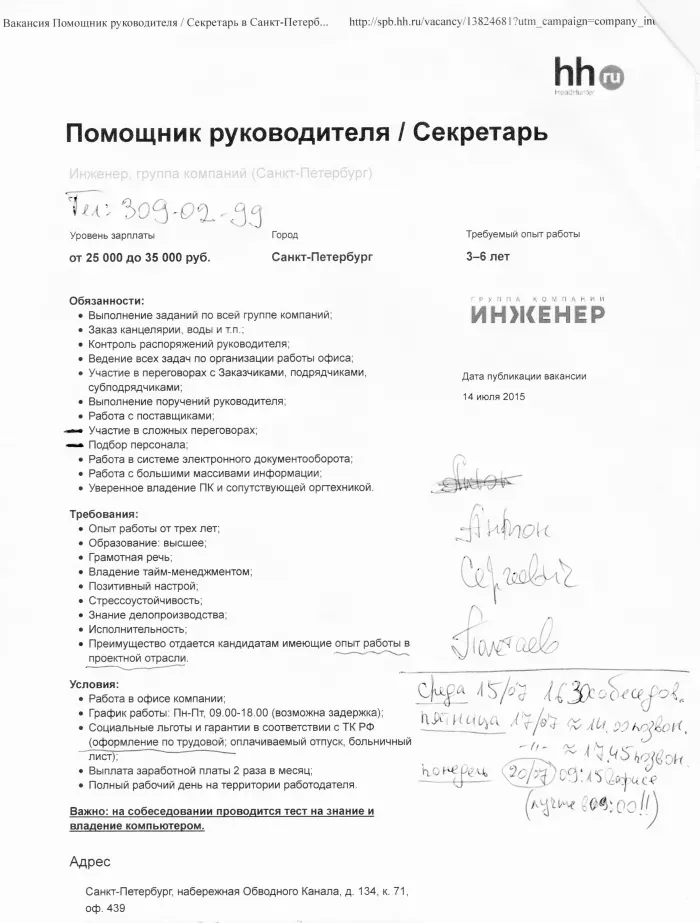 Вакансия Помощник руководителя / Секретарь в Санкт-Петерб... http://spb.hh.ru/vacancy/13824681?utm_campaign=company_inv
hh ru
HeadHunter
Помощник руководителя / Секретарь
Инженер, группа компаний (Санкт-Петербург)
Тел: 309-02-99
Уровень зарплаты Город Требуемый опыт работы
от 25 000 до 35 000 руб. Санкт-Петербург 3–6 лет
ГРУППА КОМПАНИЙ
ИНЖЕНЕР
Дата публикации вакансии
14 июля 2015
Обязанности:
• Выполнение заданий по всей группе компаний;
• Заказ канцелярии, воды и т.п.;
• Контроль распоряжений руководителя;
• Ведение всех задач по организации работы офиса;
• Участие в переговорах с Заказчиками, подрядчиками,
субподрядчиками;
• Выполнение поручений руководителя;
• Работа с поставщиками;
Участие в сложных переговорах;
Подбор персонала;
• Работа в системе электронного документооборота;
• Работа с большими массивами информации;
• Уверенное владение ПК и сопутствующей оргтехникой.
Антон
Сергеевич
Полетаев
Требования:
• Опыт работы от трех лет;
• Образование: высшее;
• Грамотная речь;
• Владение тайм-менеджментом;
• Позитивный настрой;
• Стрессоустойчивость;
• Знание делопроизводства;
• Исполнительность;
• Преимущество отдается кандидатам имеющие опыт работы в
проектной отрасли.
Условия:
• Работа в офисе компании;
• График работы: Пн-Пт, 09.00-18.00 (возможна задержка);
• Социальные льготы и гарантии в соответствии с ТК РФ
(оформление по трудовой; оплачиваемый отпуск, больничный
лист);
• Выплата заработной платы 2 раза в месяц;
• Полный рабочий день на территории работодателя.
среда 15/07 16 30 собеседов.
пятница 17/07 ≈ 14.00 позвон.
-"- ≈ 17.45 позвон.
понедель 20/07 09:15 в офисе
(лучше в 09:00!!)
Важно: на собеседовании проводится тест на знание и
владение компьютером.
Адрес
Санкт-Петербург, набережная Обводного Канала, д. 134, к. 71,
оф. 439